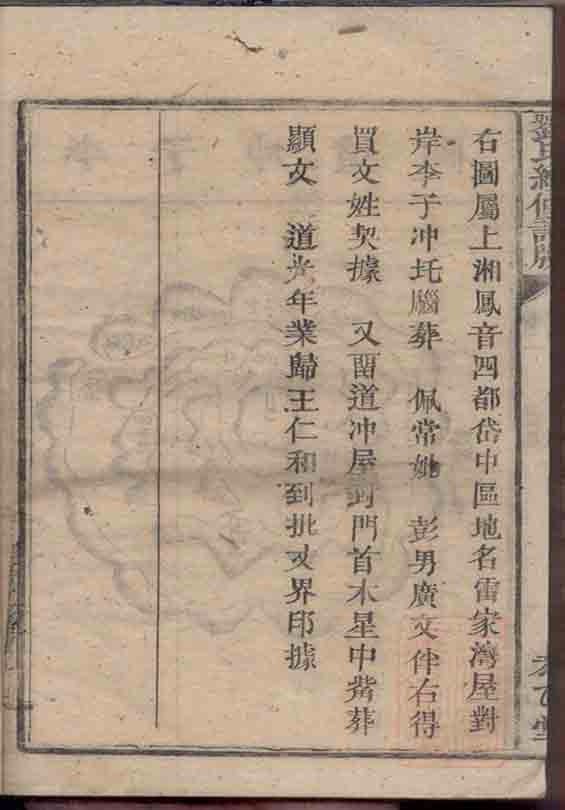 右圖屬上湘鳳音四都岱中區地名雷家灣屋對
岸李子冲圫腦葬 佩常妣 彭男廣文伴右得
買文姓契據 又留道冲屋對門首木星中嘴葬
顯文 道光年業歸王仁和到批又界印據